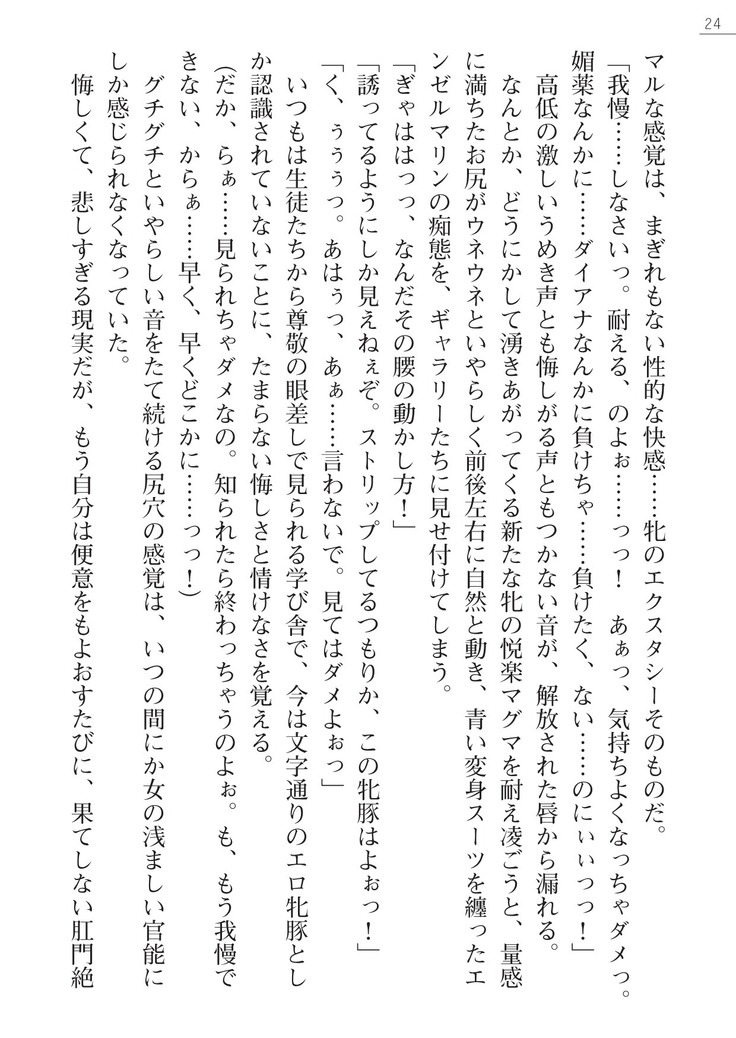 24
マルな感覚は、まぎれもない性的な快感……牝のエクスタシーそのものだ。
「我慢……しなさいっ。耐える、のよぉ……っっ！　あぁっ、気持ちよくなっちゃダメっ。
媚薬なんかに……ダイアナなんかに負けちゃ……負けたく、ない……のにぃぃっっ！」
高低の激しいうめき声とも悔しがる声ともつかない音が、解放された唇から漏れる。
なんとか、どうにかして湧きあがってくる新たな牝の悦楽マグマを耐え凌ごうと、量感
に満ちたお尻がウネウネといやらしく前後左右に自然と動き、青い変身スーツを纏ったエ
ンゼルマリンの痴態を、ギャラリーたちに見せ付けてしまう。
「ぎゃははっっ、なんだその腰の動かし方！」
「誘ってるようにしか見えねぇぞ。ストリップしてるつもりか、この牝豚はよぉっ！」
「く、ぅぅぅっ。あはぅっ、あぁ……言わないで。見てはダメよぉっ」
いつもは生徒たちから尊敬の眼差しで見られる学び舎で、今は文字通りのエロ牝豚とし
か認識されていないことに、たまらない悔しさと情けなさを覚える。
（だか、らぁ……見られちゃダメなの。知られたら終わっちゃうのよぉ。も、もう我慢で
きない、からぁ……早く、早くどこかに……っっ！）
グチグチといやらしい音をたて続ける尻穴の感覚は、いつの間にか女の浅ましい官能に
しか感じられなくなっていた。
悔しくて、悲しすぎる現実だが、もう自分は便意をもよおすたびに、果てしない肛門絶